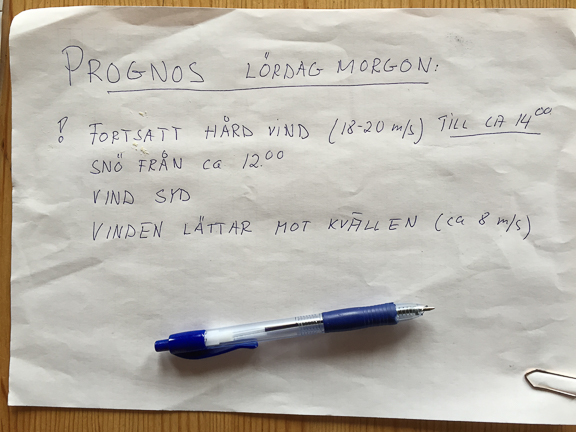 PROGNOS LÖRDAG MORGON:
! FORTSATT HÅRD VIND (18-20 m/s) TILL CA 14⁰⁰
SNÖ FRÅN ca 12.⁰⁰
VIND SYD
VINDEN LÄTTAR MOT KVÄLLEN (ca 8 m/s)